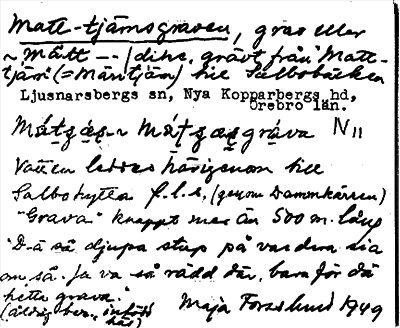 Matt-tjärnsgraven, grav eller
~ Mått — (dike, grävt från "Matt-
tjärn" (= Mäntjärn) till Salbobäcken
Ljusnarsbergs sn, Nya Kopparbergs hd,
Örebro län.
grava N 11
Vatten leddes härigenom till
Salbohyttan f.l.s. (genom Dammkärren)
"Grava" knappt mer än 500 m. lång
"D-ä så djupa stup på vardera sia
om så. Ja va så rädd där, bara för dä
hette grava."
(äldre ber., infödd
här) Maja Forsslund 1949